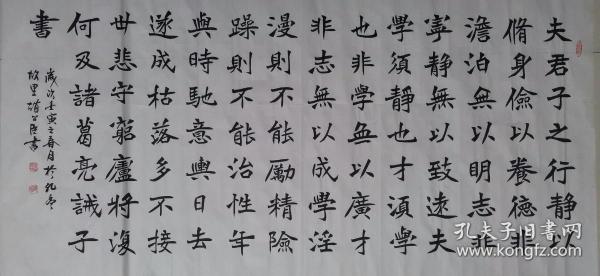 夫君子之行静以
脩身儉以養德非
澹泊無以明志非
寧静無以致遠夫
學須静也才須學
也非學無以廣才
非志無以成學淫
漫則不能勵精險
躁則不能治性年
與時馳意與日去
遂成枯落多不接
世悲守窮廬將復
何及諸葛亮誡子
書
歲次壬寅之春月於孔孟
故里
孔夫子旧书网
www.kongfz.com